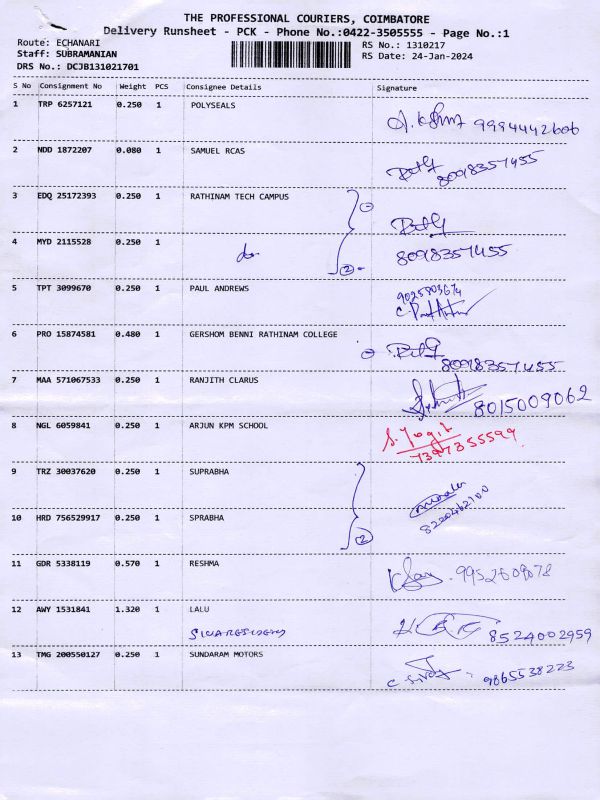 THE PROFESSIONAL COURIERS, COIMBATORE
Delivery Runsheet - PCK - Phone No.:0422-3505555 - Page No.:1
Route: ECHANARI
Staff: SUBRAMANIAN
DRS No.: DCJB131021701
RS No.: 1310217
RS Date: 24-Jan-2024
S No Consignment No Weight PCS Consignee Details Signature
1 TRP 6257121 0.250 1 POLYSEALS
9994442606
2 NDD 1872207 0.080 1 SAMUEL RCAS
8098357455
3 EDQ 25172393 0.250 1 RATHINAM TECH CAMPUS
4 MYD 2115528 0.250 1 do
2
8098357455
5 TPT 3099670 0.250 1 PAUL ANDREWS
9025803674
6 PRO 15874581 0.480 1 GERSHOM BENNI RATHINAM COLLEGE
8098357455
7 MAA 571067533 0.250 1 RANJITH CLARUS
8015009062
8 NGL 6059841 0.250 1 ARJUN KPM SCHOOL
S. Yogi
7397355599
9 TRZ 30037620 0.250 1 SUPRABHA
8220462100
10 HRD 756529917 0.250 1 SPRABHA
2
11 GDR 5338119 0.570 1 RESHMA
9952609878
12 AWY 1531841 1.320 1 LALU
8524002959
13 TMG 200550127 0.250 1 SUNDARAM MOTORS
9865538223